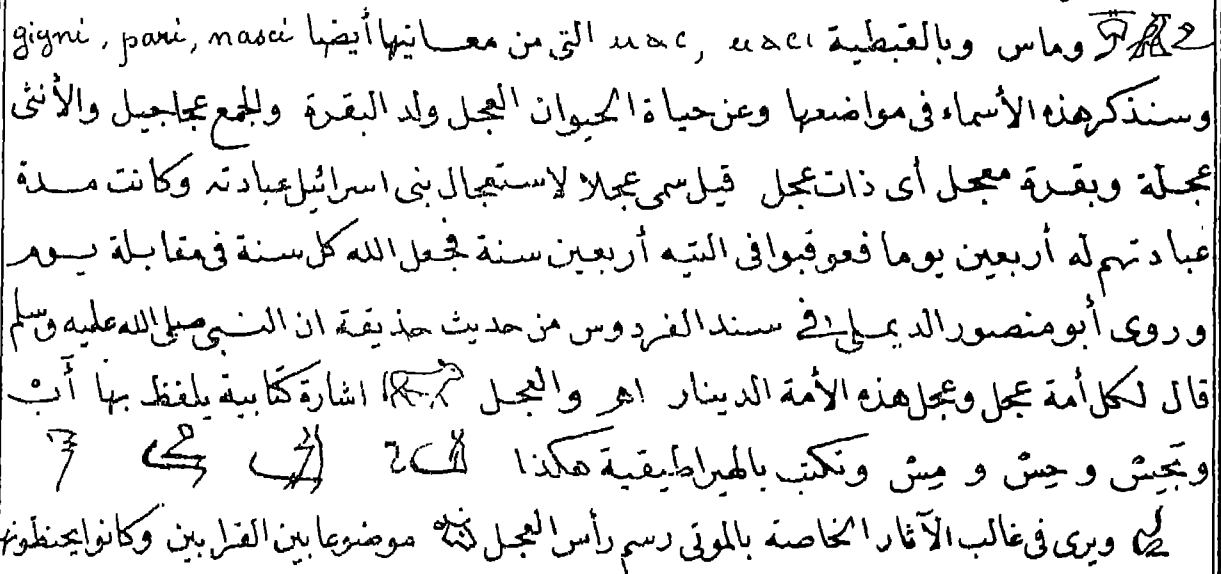 وماس وبالقبطية ⲙⲁⲥ, ⲙⲁⲥⲓ التى من معانيها أيضا gigni, pari, nasci
وسنذكر هذه الأسماء فى مواضعها وعن حياة الحيوان العجل ولد البقرة والجمع عجاجيل والأنثى
عجلة وبقرة معجل أى ذات عجل قيل سمى عجلا لاستعجال بنى اسرائيل عبادته وكانت مدة
عبادتهم له أربعين يوما فعوقبوا فى التيه أربعين سنة فجعل الله كل سنة فى مقابلة يوم
وروى أبو منصور الديملى فى سند الفردوس من حديث حذيفة ان النبى صلى الله عليه وسلم
قال لكل أمة عجل وعجل هذه الأمة الدينار اهر والعجل اشارة كتابية يلفظ بها أَبْ
وبَحِسْ و حِسْ و مِسْ وتكتب بالهيراطيقية هكذا
ويرى فى غالب الآثار الخاصة بالموتى رسم رأس العجل موضوعا بين القرابين وكانوا يحنطونه